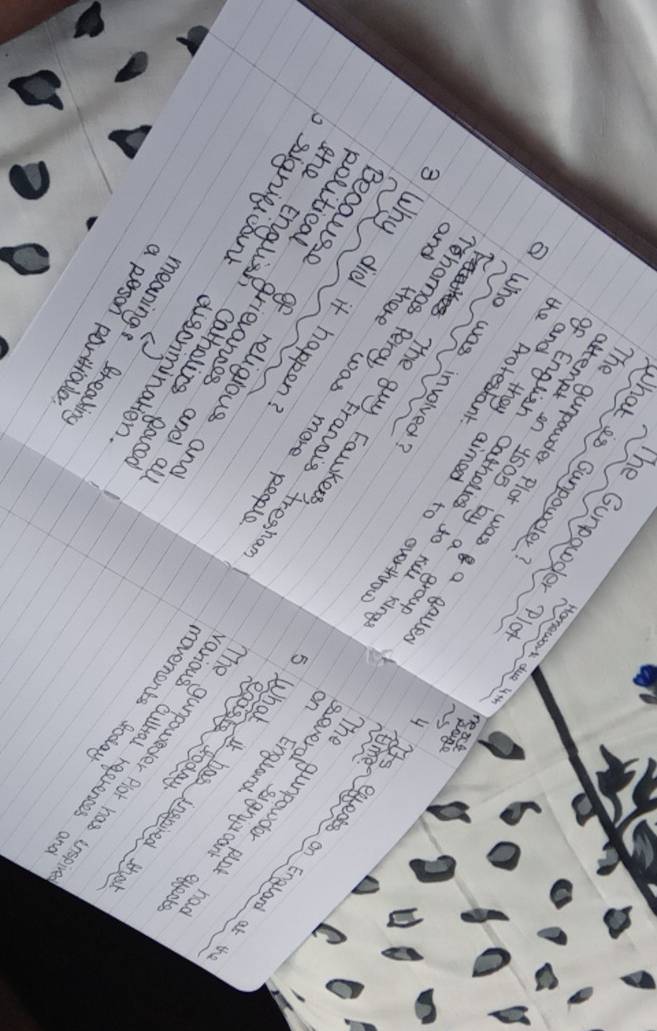 The Gunpowder Plot Homework due 4th
What is Gunpowder?
The gunpowder Plot was a failed
attempt in 1605 by a group
of English Catholics to kill kings
the and they aimed to do overthrow
Protestant.
② Who was involved?
The guy Fawkes
Thomas Percy Francis Tresham
and there was more people
3 Why did it happen?
Because of religious and
political grievances and all
the English Catholics faced
significant discrimination.
meaning: treating
a person
next page
4 It's effects on England at the
time
The gunpowder plot had
several significant effects
on England
5 What it has inspired that
today
The gunpowder Plot has inspired
various cultural references and
movements today